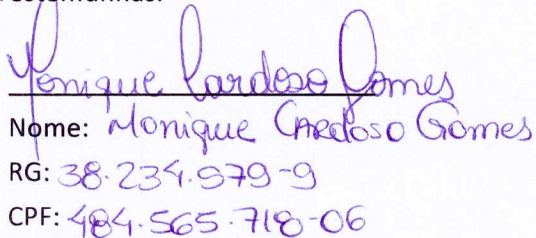 Testemunhas:
Monique Cardoso Gomes
Nome: Monique Cardoso Gomes
RG: 38.234.979-9
CPF: 484.565.718-06